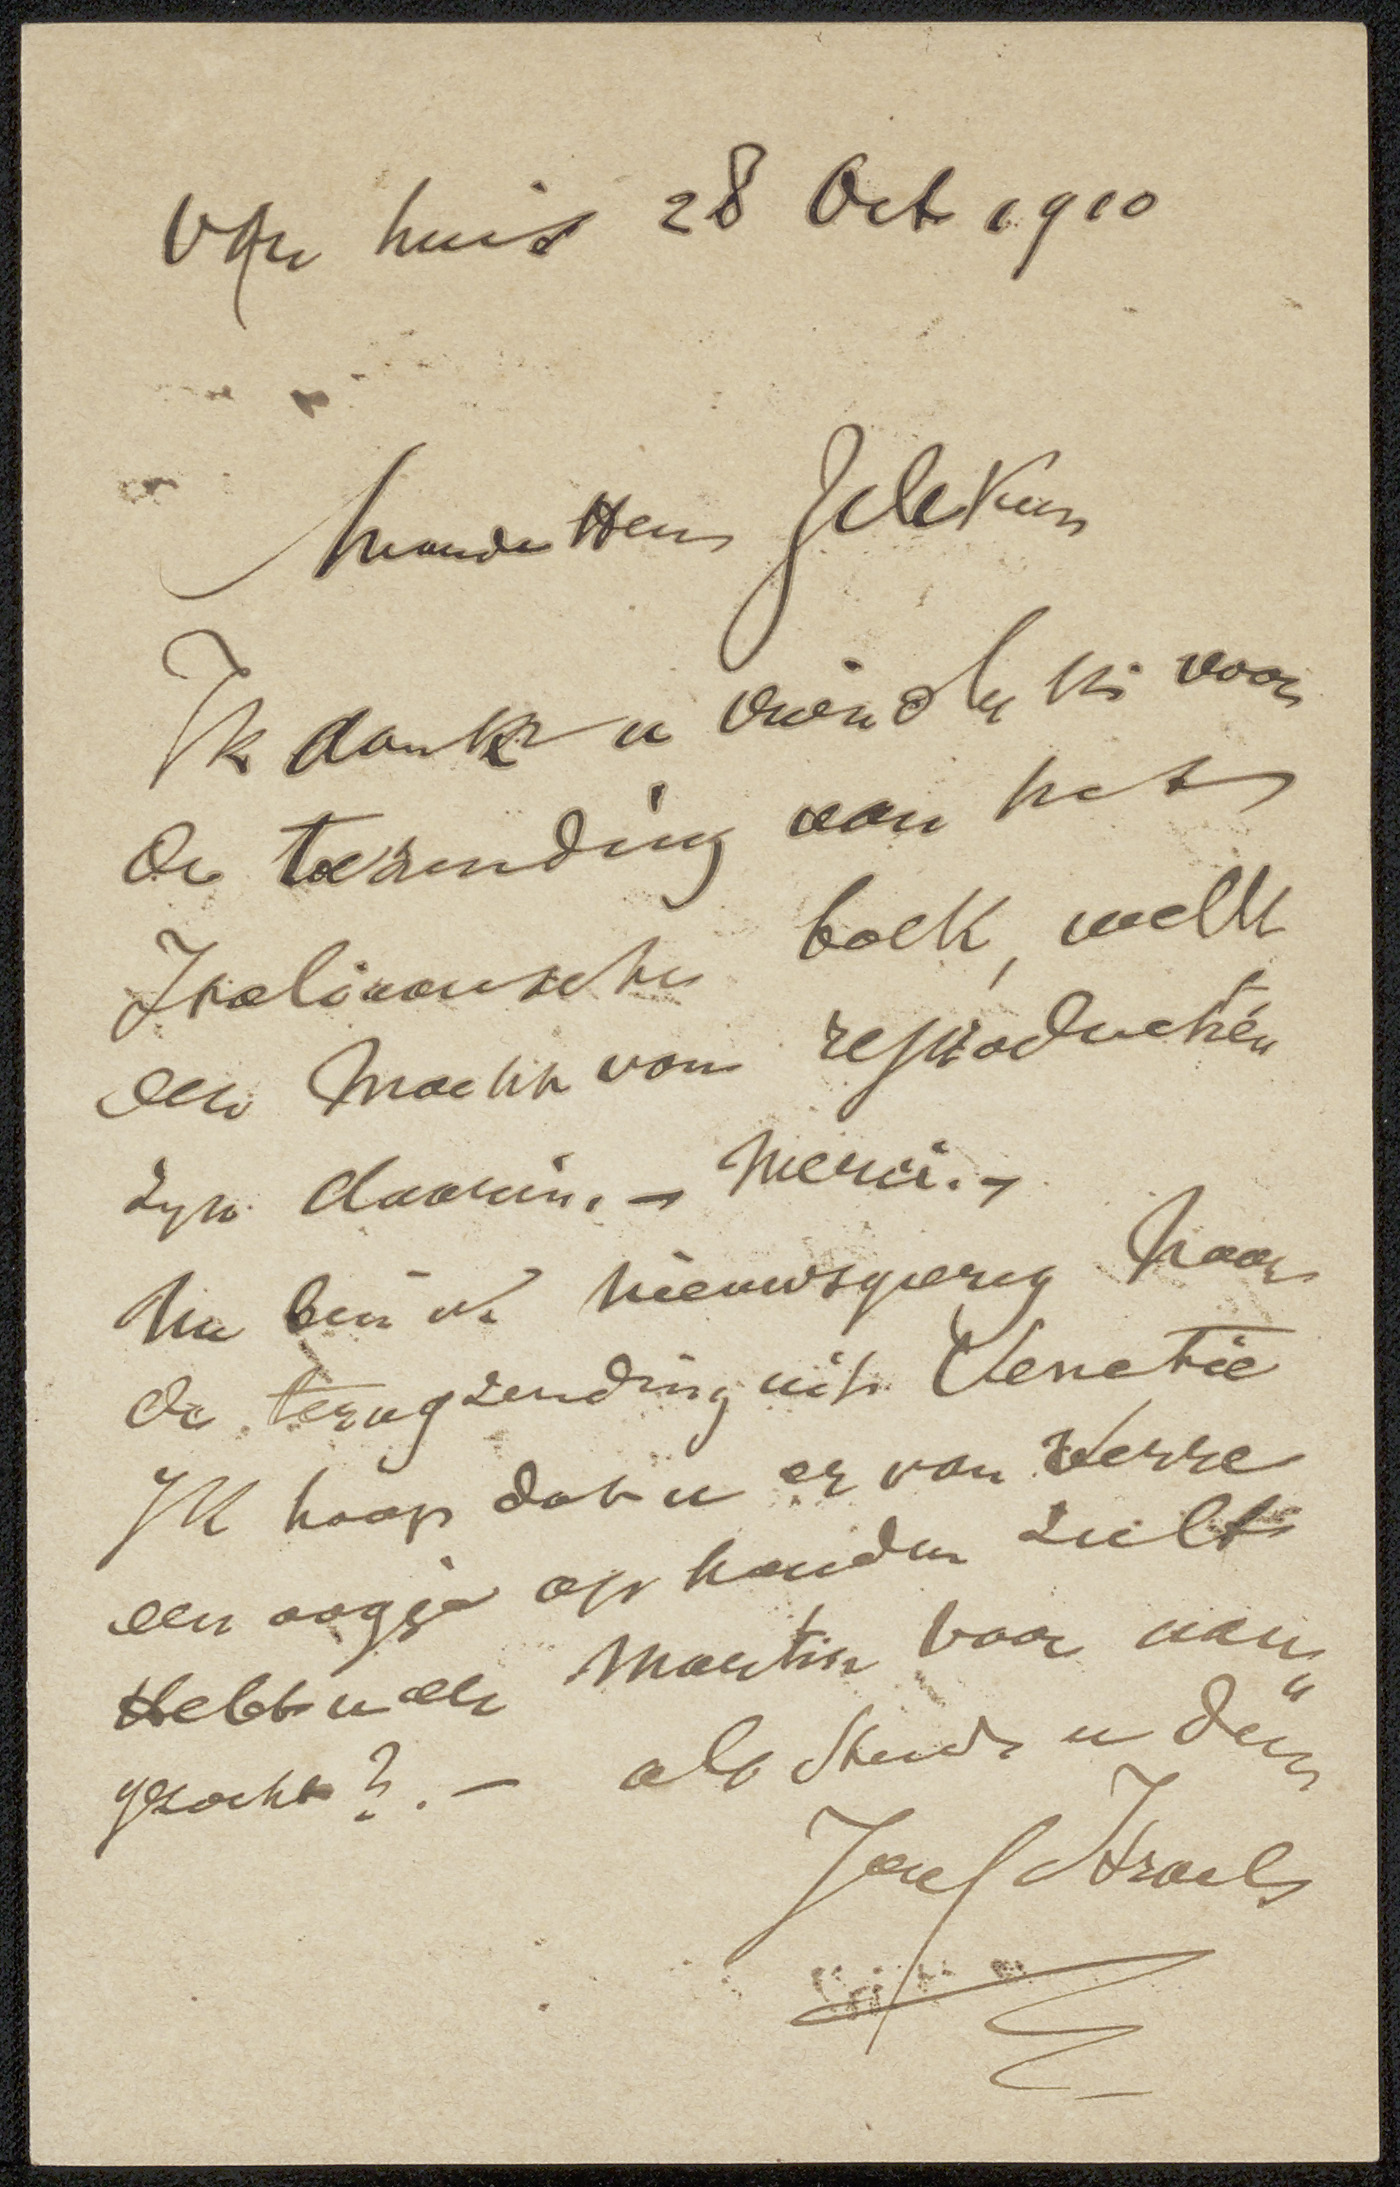 Van huis 28 Oct 1910
Waarde Heer Zilcken
Ik dank u vriendelyk voor
de toezending van het
Italiaansche boek, welk
een macht van reproductien
zyn daarin. - Merci. -
Nu ben ik nieuwsgierig naar
de terugzending uit Venetie
Ik hoop dat u er van verre
een oogje op houden zult
Hebt u een Martin voor aan
gezocht? . - als steeds u dien
Jozef Israels